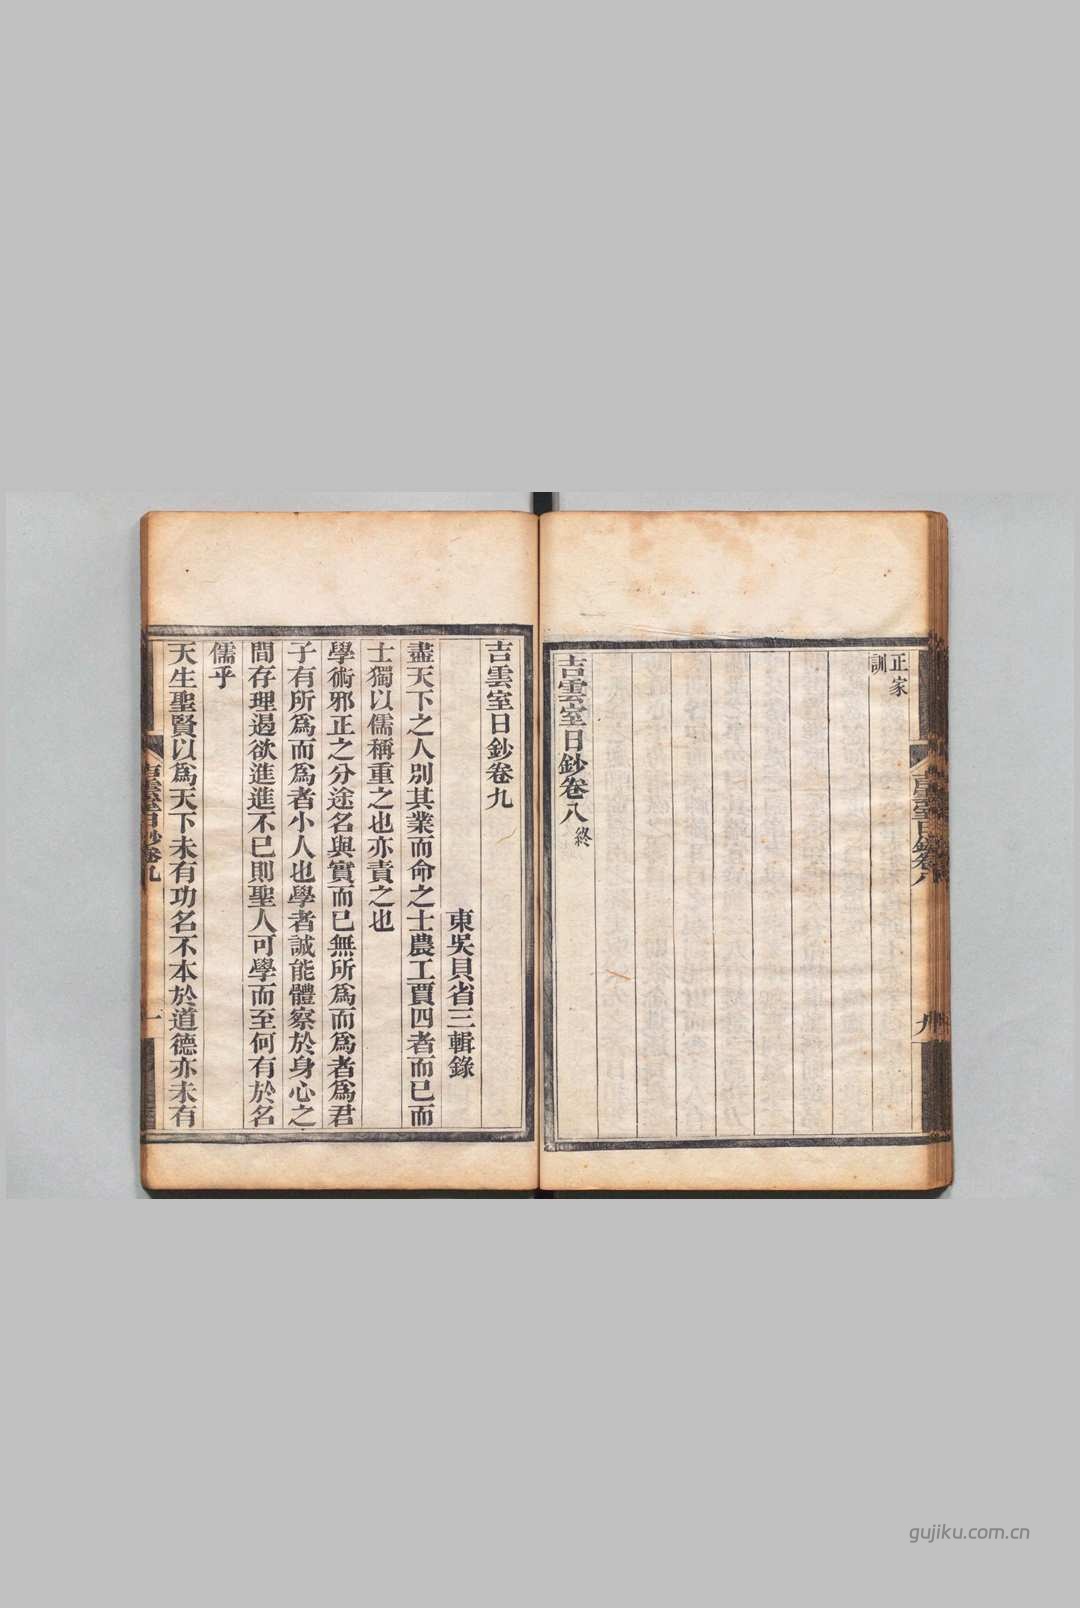 正家
訓
吉雲室日鈔卷八終
吉雲室日鈔卷八
九
吉雲室日鈔卷九
東吳貝省三輯錄
盡天下之人別其業而命之士農工賈四者而已而
士獨以儒稱重之也亦責之也
學術邪正之分途名與實而已無所爲而爲者爲君
子有所爲而爲者小人也學者誠能體察於身心之
間存理遏欲進進不已則聖人可學而至何有於名
儒乎
天生聖賢以爲天下未有功名不本於道德亦未有
吉雲室日鈔卷九
一
gujiku.com.cn